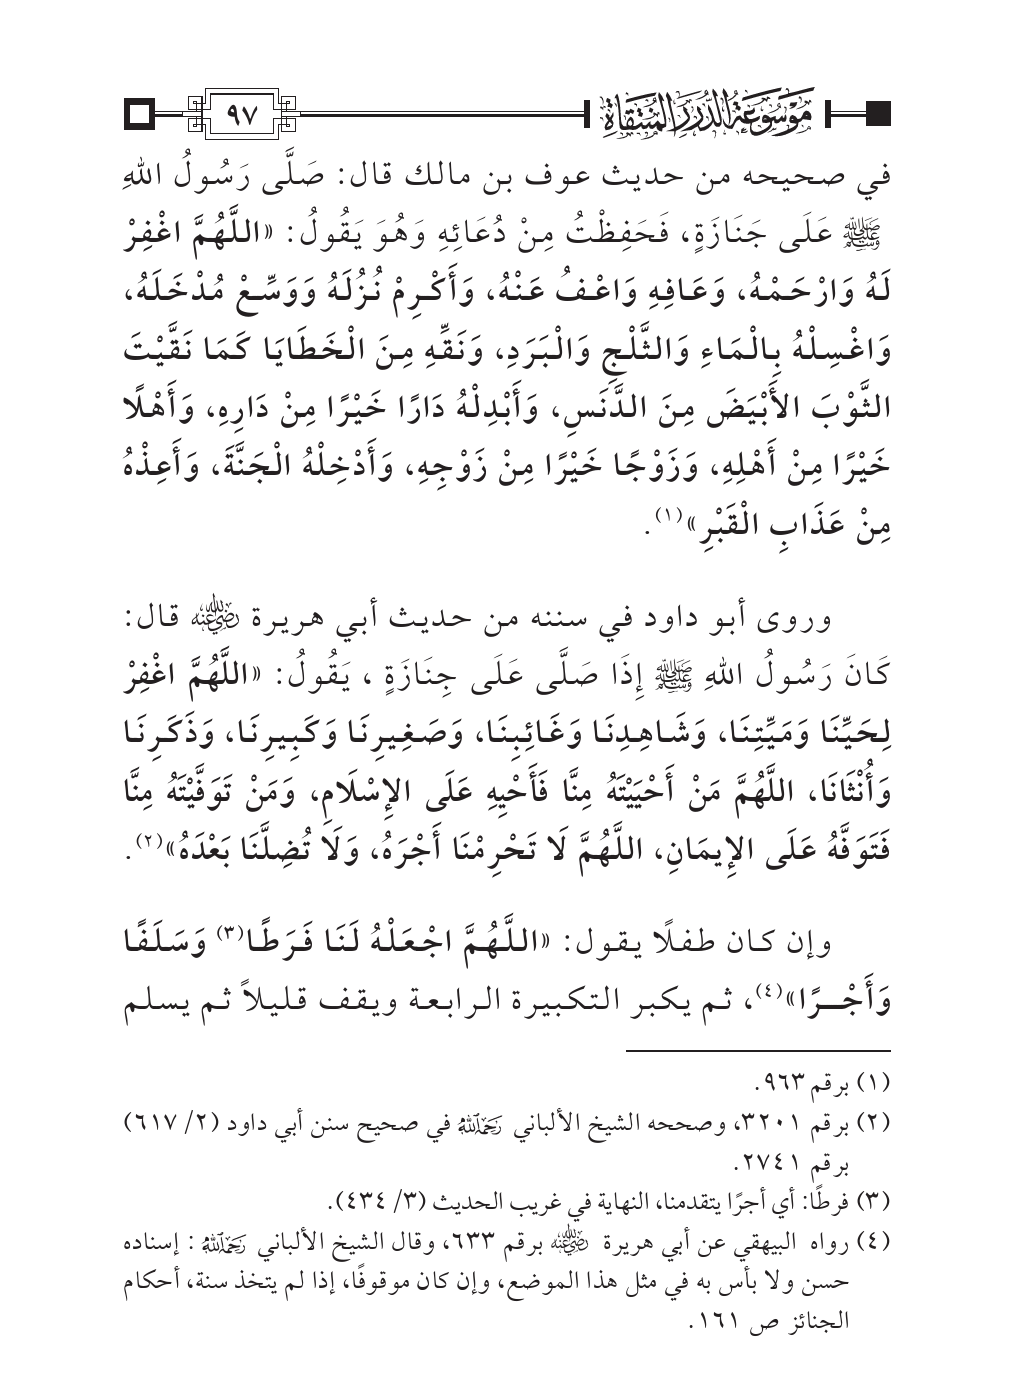 موسوعة الدرر المنتقاة
٩٧
في صحيحه من حديث عوف بن مالك قال: صَلَّى رَسُولُ اللهِ
ﷺ عَلَى جَنَازَةٍ، فَحَفِظْتُ مِنْ دُعَائِهِ وَهُوَ يَقُولُ: «اللَّهُمَّ اغْفِرْ
لَهُ وَارْحَمْهُ، وَعَافِهِ وَاعْفُ عَنْهُ، وَأَكْرِمْ نُزُلَهُ وَوَسِّعْ مُدْخَلَهُ،
وَاغْسِلْهُ بِالْمَاءِ وَالثَّلْجِ وَالْبَرَدِ، وَنَقِّهِ مِنَ الْخَطَايَا كَمَا نَقَّيْتَ
الثَّوْبَ الأَبْيَضَ مِنَ الدَّنَسِ، وَأَبْدِلْهُ دَارًا خَيْرًا مِنْ دَارِهِ، وَأَهْلًا
خَيْرًا مِنْ أَهْلِهِ، وَزَوْجًا خَيْرًا مِنْ زَوْجِهِ، وَأَدْخِلْهُ الْجَنَّةَ، وَأَعِذْهُ
مِنْ عَذَابِ الْقَبْرِ»(١).
وروى أبو داود في سننه من حديث أبي هريرة رضي الله عنه قال:
كَانَ رَسُولُ اللهِ ﷺ إِذَا صَلَّى عَلَى جِنَازَةٍ ، يَقُولُ: «اللَّهُمَّ اغْفِرْ
لِحَيِّنَا وَمَيِّتِنَا، وَشَاهِدِنَا وَغَائِبِنَا، وَصَغِيرِنَا وَكَبِيرِنَا، وَذَكَرِنَا
وَأُنْثَانَا، اللَّهُمَّ مَنْ أَحْيَيْتَهُ مِنَّا فَأَحْيِهِ عَلَى الإِسْلَامِ، وَمَنْ تَوَفَّيْتَهُ مِنَّا
فَتَوَفَّهُ عَلَى الإِيمَانِ، اللَّهُمَّ لَا تَحْرِمْنَا أَجْرَهُ، وَلَا تُضِلَّنَا بَعْدَهُ»(٢).
وإن كان طفلًا يقول: «اللَّهُمَّ اجْعَلْهُ لَنَا فَرَطًا(٣) وَسَلَفًا
وَأَجْرًا»(٤)، ثم يكبر التكبيرة الرابعة ويقف قليلاً ثم يسلم
(١) برقم ٩٦٣.
(٢) برقم ٣٢٠١، وصححه الشيخ الألباني رحمه الله في صحيح سنن أبي داود (٢/ ٦١٧)
برقم ٢٧٤١.
(٣) فرطًا: أي أجرًا يتقدمنا، النهاية في غريب الحديث (٣/ ٤٣٤).
(٤) رواه البيهقي عن أبي هريرة رضي الله عنه برقم ٦٣٣، وقال الشيخ الألباني رحمه الله : إسناده
حسن ولا بأس به في مثل هذا الموضع، وإن كان موقوفًا، إذا لم يتخذ سنة، أحكام
الجنائز ص ١٦١.